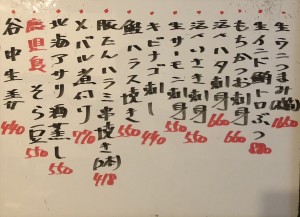 生ウニつまみ(塩) 1650
生インド鮪トロぶつ 880
もちかつお刺身 660
活〆ハタ刺身 660
活〆いさき刺身 550
生サーモン刺身 550
キビナゴ刺し 440
鮭ハラス焼き 550
豚たんハラミ串焼き(2本) 418
メバル煮付 770
北海アサリ酒蒸し 550
鹿児島そら豆 550
谷中生姜 440